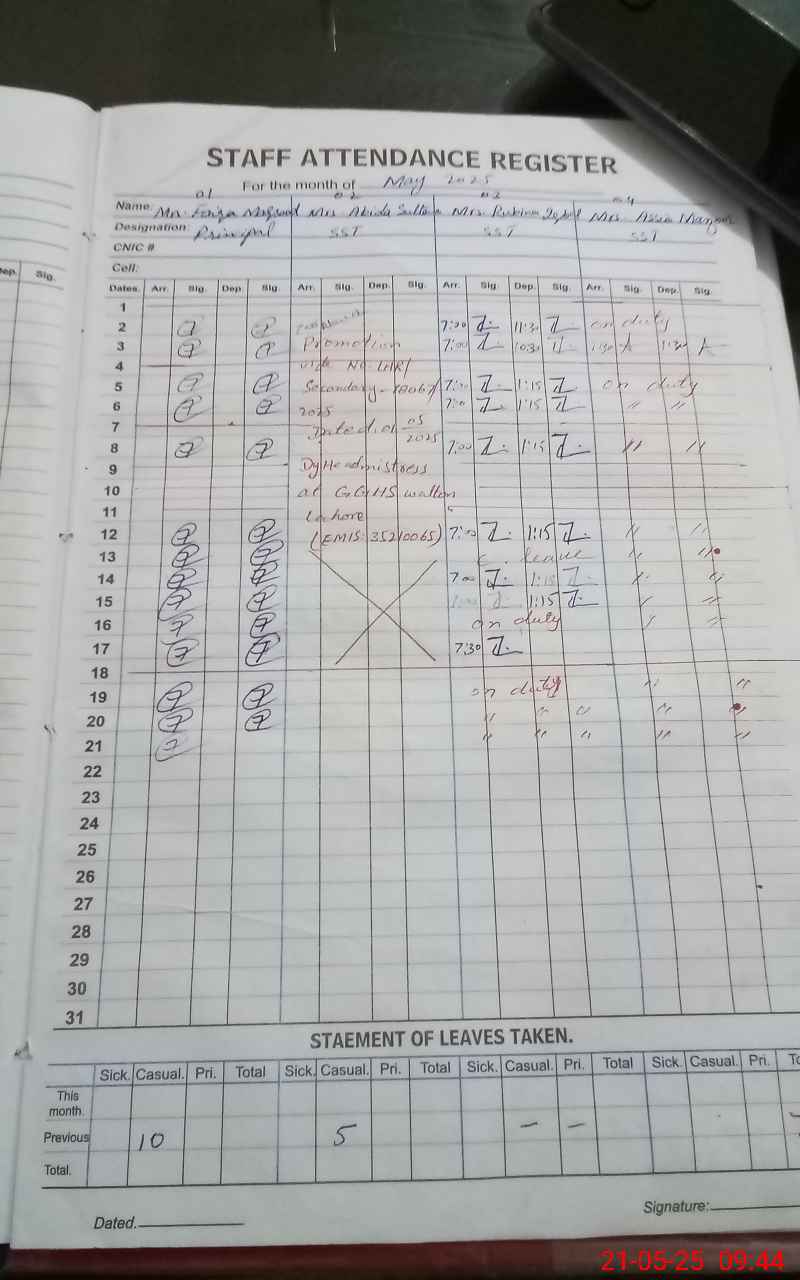 STAFF ATTENDANCE REGISTER
For the month of May 2025
01 02 03 04
Name: Mrs. Maqsood Mrs. Abida Sultana Mrs. Rubina Iqbal Mrs. Asia
Designation: Principal SST SST SST
CNIC #
Cell:
ep. Sig.
Dates. Arr. Sig. Dep. Sig. Arr. Sig. Dep. Sig. Arr. Sig. Dep. Sig. Arr. Sig. Dep. Sig.
1
2 7:00 11:30 on duty
3 Promotion 7:00 10:30
4 vide No.
5 Secondary 7:00 1:15 on duty
6 2025 7:00 1:15 " "
7 Dated 05
2025
8 7:00 1:15 " "
9 Dy Headmistress
10 at GGHS walton
11 Lahore
12 (EMIS: 35210065) 7:00 1:15 " "
13 c. leave " "
14 7:00 1:15 " "
15 1:15 " "
16 on duty " "
17 7:30
18
19 on duty " "
20 " " " " "
21 " " " " "
22
23
24
25
26
27
28
29
30
31
STAEMENT OF LEAVES TAKEN.
Sick. Casual. Pri. Total Sick. Casual. Pri. Total Sick. Casual. Pri. Total Sick. Casual. Pri. To
This
month.
Previous 10 5 – –
Total.
Dated. Signature:
21-05-25 09:44